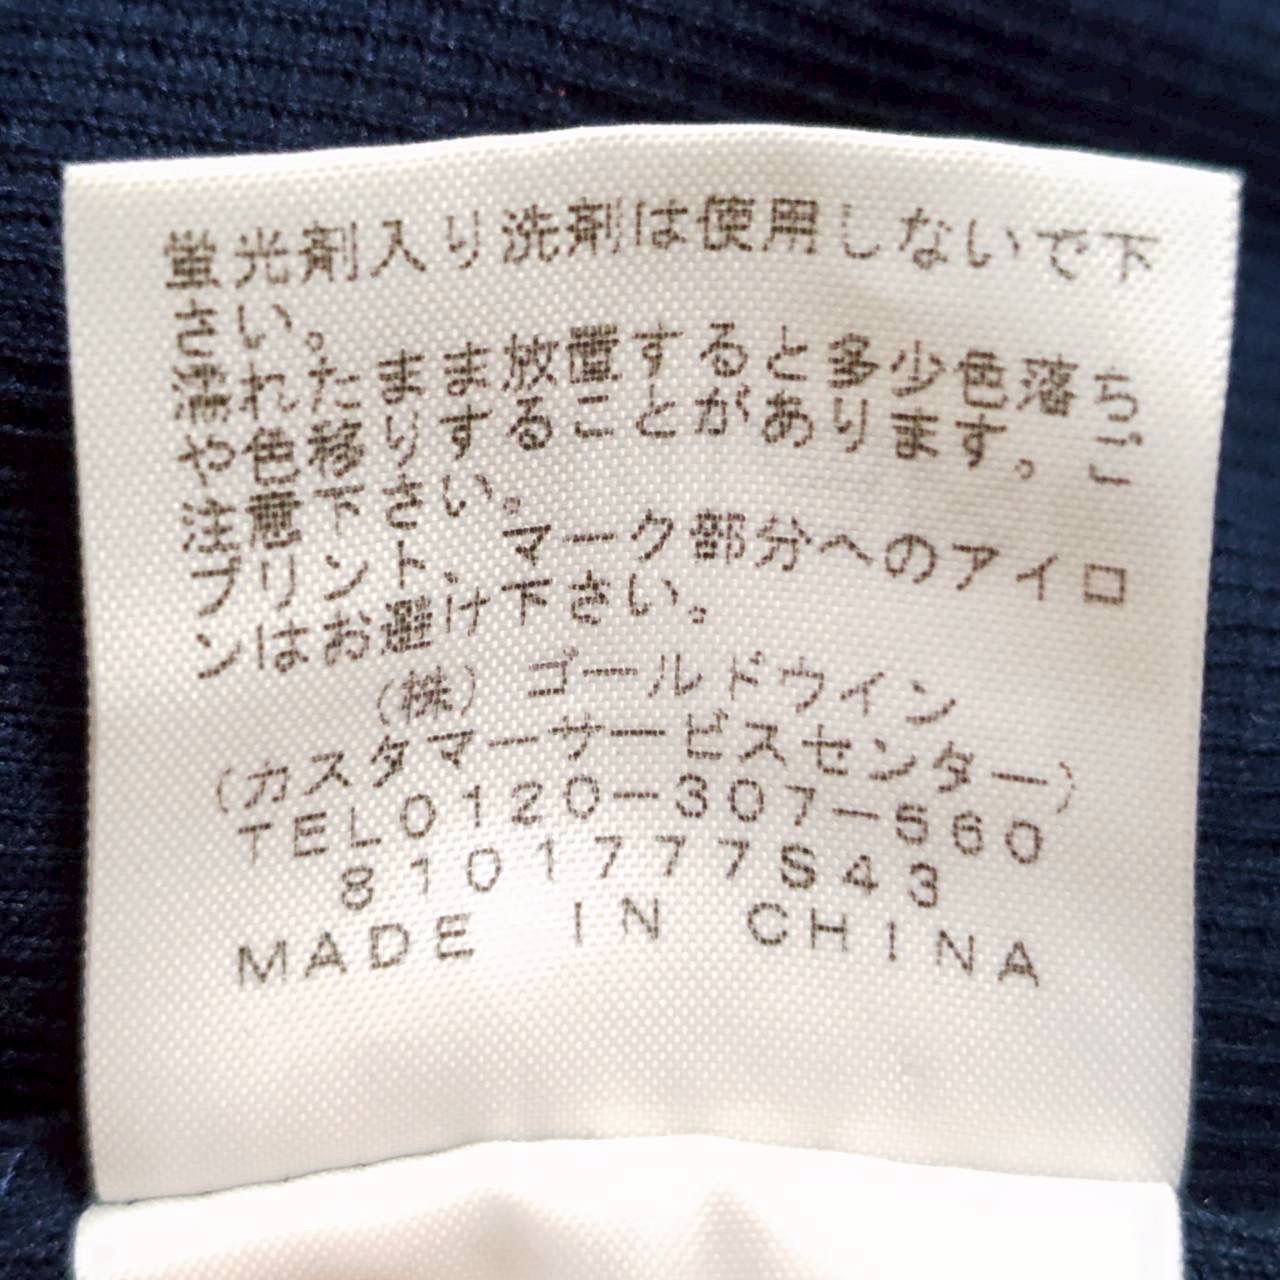 蛍光剤入り洗剤は使用しないで下
さい。
濡れたまま放置すると多少色落ち
や色移りすることがあります。ご
注意下さい。
プリント、マーク部分へのアイロ
ンはお避け下さい。
(株) ゴールドウイン
(カスタマーサービスセンター)
TEL0120-307-560
8101777S43
MADE IN CHINA